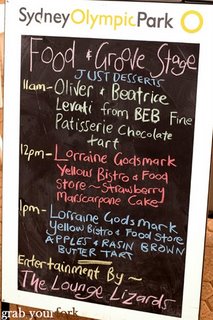 SydneyOlympicPark
Food & Groove Stage
JUST DESSERTS
11am - Oliver & Beatrice
Levati from BEB Fine
Patisserie Chocolate
tart
12pm - Lorraine Godsmark
Yellow Bistro & Food
Store ~ Strawberry
Marscarpone Cake
1pm - Lorraine Godsmark
Yellow Bistro & Food Store
APPLES & RASIN BROWN
BUTTER TART
Entertainment By ~
The Lounge Lizards
grab your fork